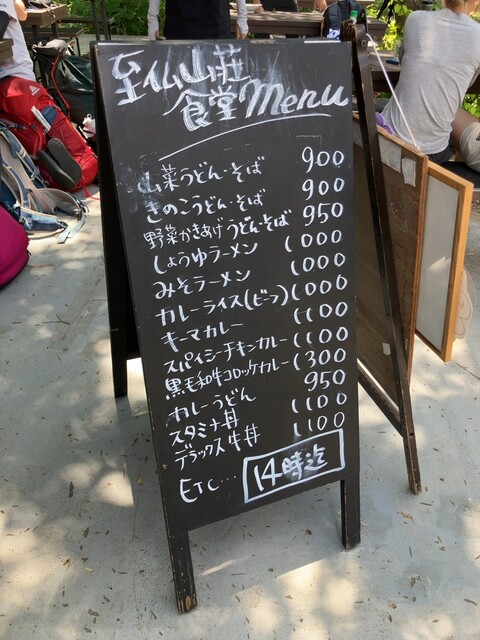 至仏山荘
食堂Menu
山菜うどん・そば 900
きのこうどん・そば 900
野菜かきあげうどん・そば 950
しょうゆラーメン 1000
みそラーメン 1000
カレーライス(ビーフ) 1000
キーマカレー 1100
スパイシーチキンカレー 1100
黒毛和牛コロッケカレー 1300
カレーうどん 950
スタミナ丼 1100
デラックス牛丼 1100
ETC… 14時迄